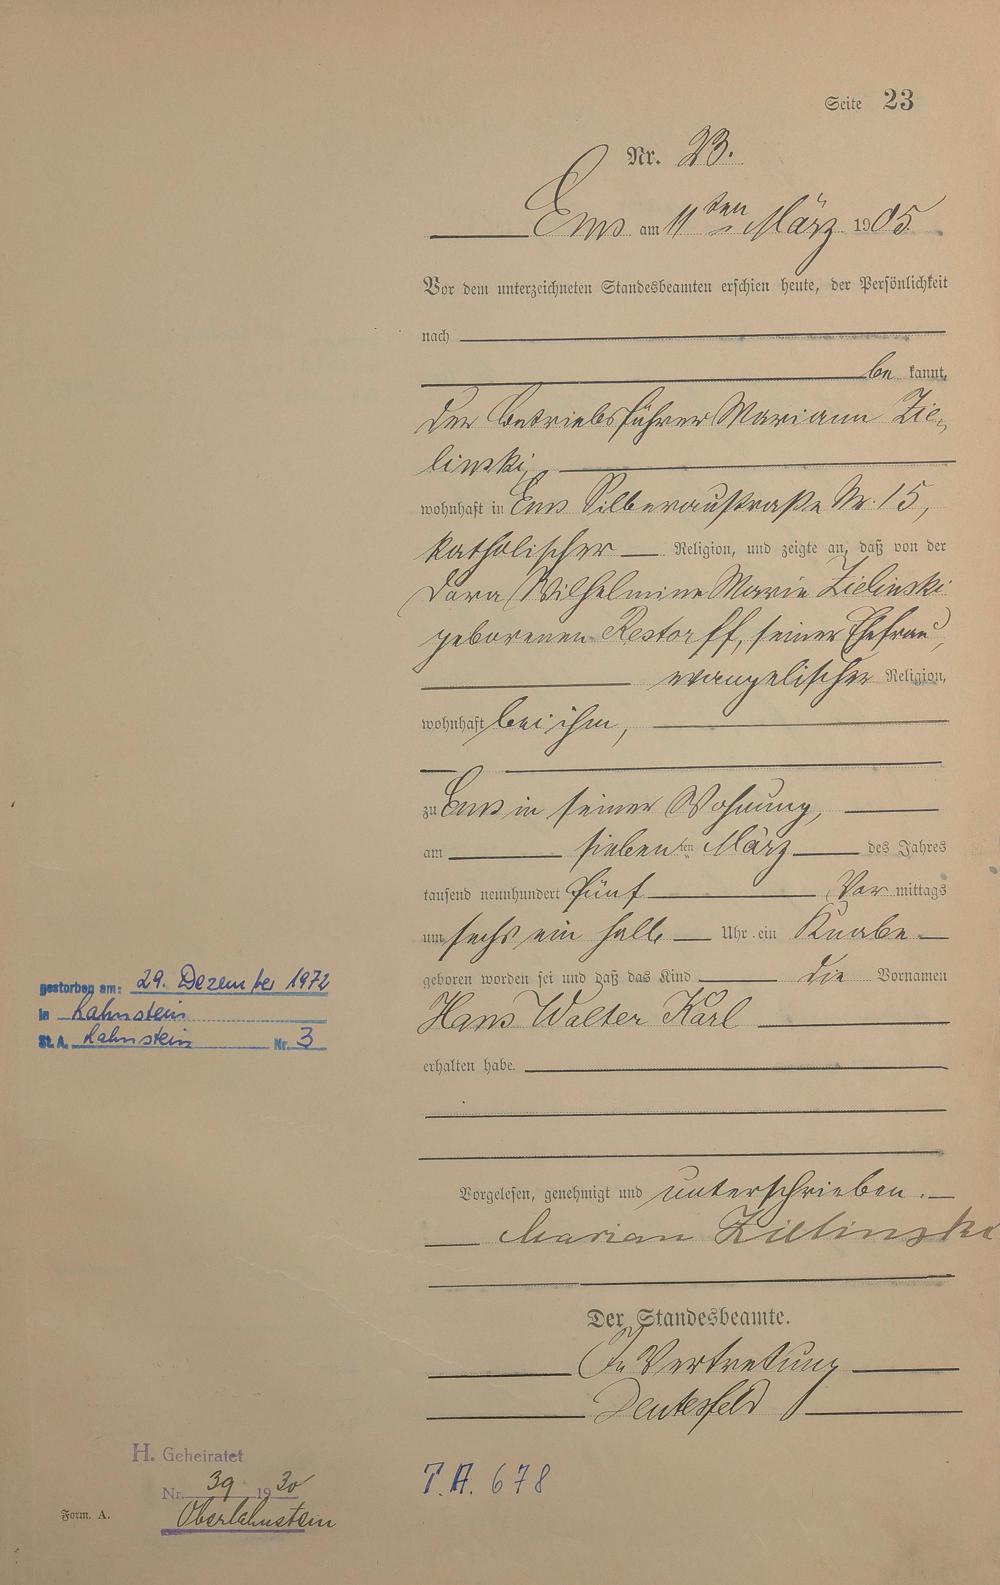 Seite 23
Nr. 23.
Ems am 11ten März 1905.
Vor dem unterzeichneten Standesbeamten erschien heute, der Persönlichkeit
nach
be kannt,
der Betriebsführer Mariann Zie-
linski,
wohnhaft in Ems Silberaustraße Nr. 15,
katholischer Religion, und zeigte an, daß von der
Dora Wilhelmine Marie Zielinski
geborenen Restorff, seiner Ehefrau,
evangelischer Religion,
wohnhaft bei ihm,
zu Ems in seiner Wohnung,
am siebenten März des Jahres
tausend neunhundert fünf Vor mittags
um sechs ein halb Uhr ein Knabe
geboren worden sei und daß das Kind die Vornamen
Hans Walter Karl
erhalten habe.
Vorgelesen, genehmigt und unterschrieben.
Marian Zielinski
Der Standesbeamte.
In Vertretung
gestorben am: 29. Dezember 1972
in Lahnstein
St. A. Lahnstein Nr. 3
H. Geheiratet
Nr. 39 1930
Oberlahnstein
Form. A.
T. A. 678